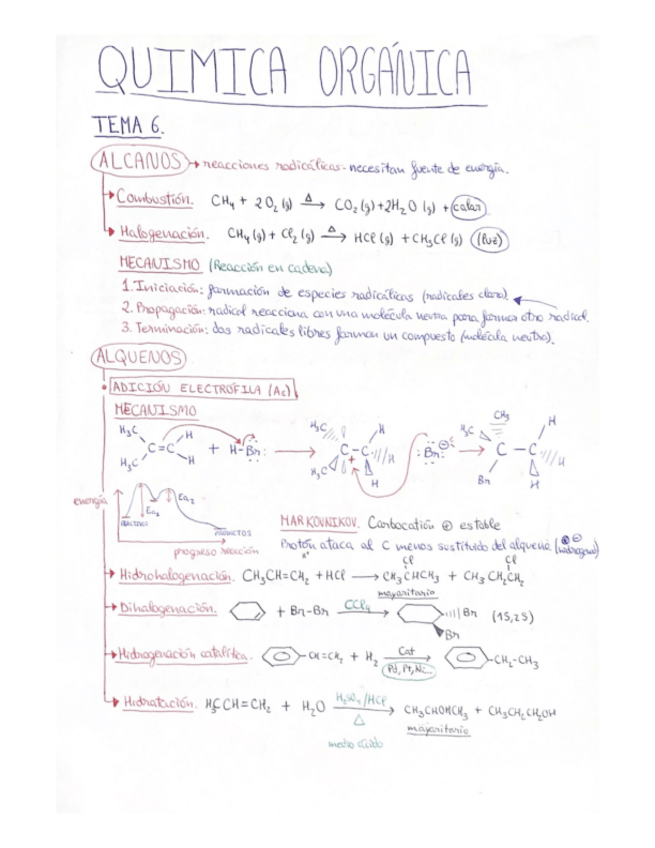 QUIMICA ORGÁNICA
TEMA 6.
ALCANOS → reacciones radicálicas - necesitan fuente de energía.
Combustión. CH₄ + 2O₂ (g) →Δ CO₂ (g) + 2H₂O (g) + calor
Halogenación. CH₄ (g) + Cl₂ (g) →Δ HCl (g) + CH₃Cl (g) (luz)
MECANISMO (Reacción en cadena)
1. Iniciación: formación de especies radicálicas (radicales cloro).
2. Propagación: radical reacciona con una molécula neutra para formar otro radical.
3. Terminación: dos radicales libres forman un compuesto (molécula neutra).
ALQUENOS
ADICIÓN ELECTRÓFILA (AE)
MECANISMO
H₃C H₃C C=C H H + H-Br: → H₃C H₃C C-C H H H + :Br: ⊖ → H₃C CH₃ C-C Br H H H
energía REACTIVOS Ea₁ Ea₂ PRODUCTOS
progreso reacción
MARKOVNIKOV. Carbocatión ⊕ estable
Protón ataca al C menos sustituido del alqueno (hidrógeno)
H⁺
Hidrohalogenación. CH₃CH=CH₂ + HCl → CH₃CHCH₃ + CH₃CH₂CH₂
Cl Cl
mayoritario
Dihalogenación. + Br-Br →CCl₄ Br Br (1S,2S)
Hidrogenación catalítica. -CH=CH₂ + H₂ →Cat -CH₂-CH₃
Pd, Pt, Ni...
Hidratación. H₃CCH=CH₂ + H₂O →H₂SO₄/HCl Δ CH₃CHOHCH₃ + CH₃CH₂CH₂OH
mayoritario
medio ácido